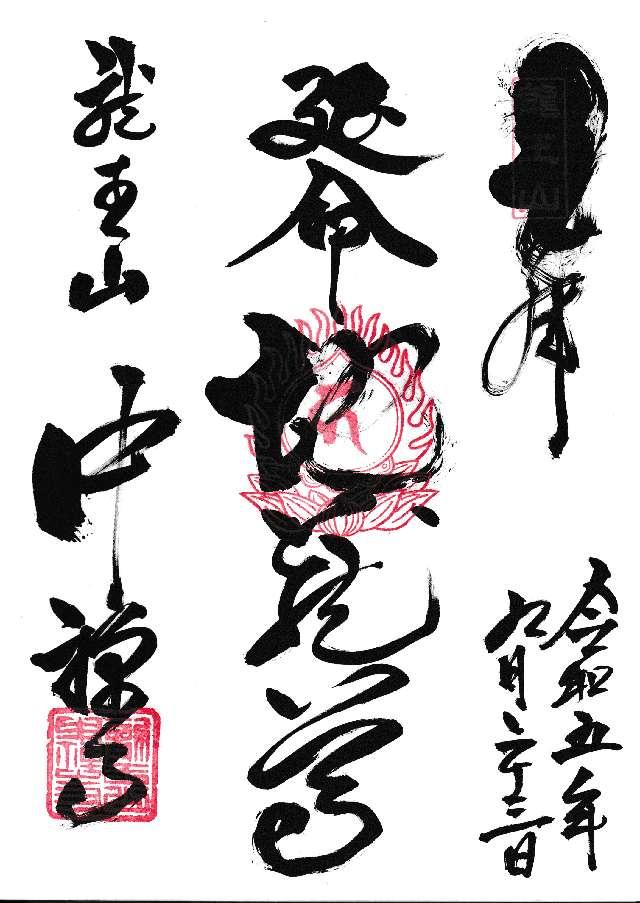 奉拝
龍王山
令和五年
九月二十三日
延命地蔵尊
龍王山
中禅寺